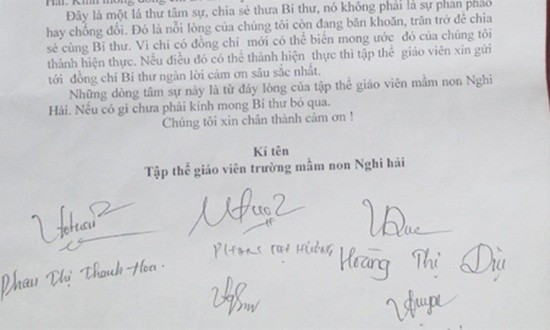 Đây là một lá thư tâm sự, chia sẻ thưa Bí thư, nó không phải là sự phản pháo
hay chống đối. Đó là nỗi lòng của chúng tôi còn đang băn khoăn, trăn trở để chia
sẻ cùng Bí thư. Vì chỉ có đồng chí mới có thể biến mong ước đó của chúng tôi
thành hiện thực. Nếu điều đó có thể thành hiện thực thì tập thể giáo viên xin gửi
tới đồng chí Bí thư ngàn lời cảm ơn sâu sắc nhất.
Những dòng tâm sự này là từ đáy lòng của tập thể giáo viên mầm non Nghi
Hải. Nếu có gì chưa phải kính mong Bí thư bỏ qua.
Chúng tôi xin chân thành cảm ơn !
Kí tên
Tập thể giáo viên trường mầm non Nghi hải
Phan Thị Thanh-Hoa.
Hoàng Thị Dịu